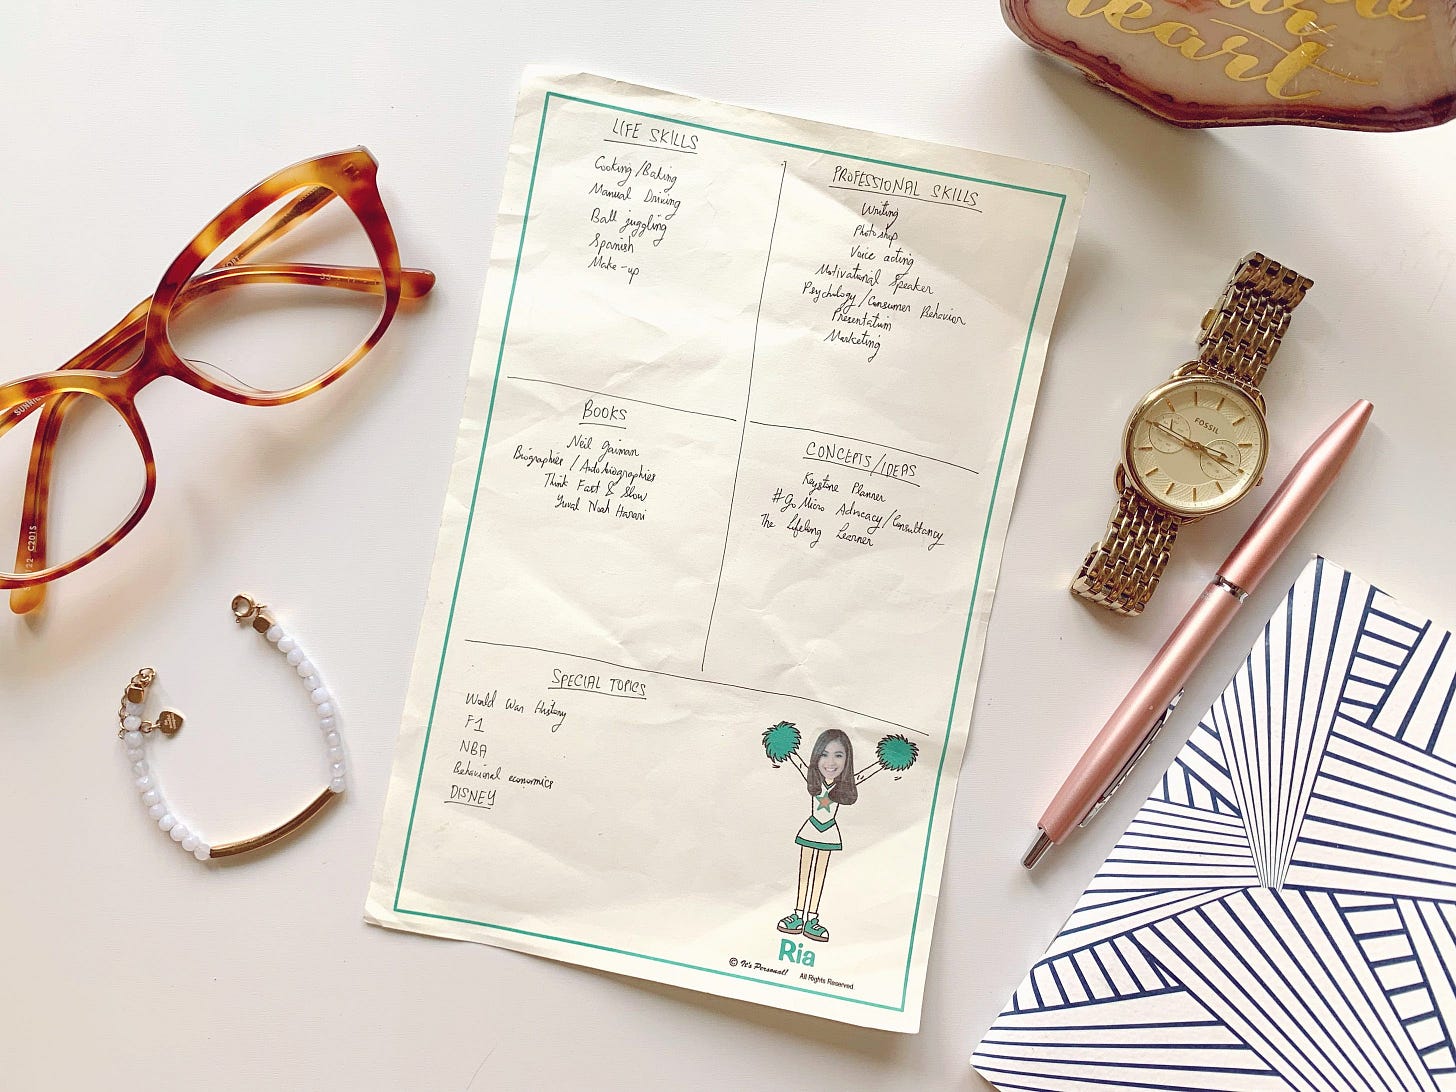 LIFE SKILLS
Cooking/Baking
Manual Driving
Ball juggling
Spanish
Make-up
PROFESSIONAL SKILLS
Writing
Photoshop
Voice acting
Motivational Speaker
Psychology/Consumer Behavior
Presentation
Marketing
BOOKS
Neil Gaiman
Biographies/Autobiographies
Think Fast & Slow
Yuval Noah Harari
CONCEPTS/IDEAS
Keystone Planner
#GoMicro Advocacy/Consultancy
The Lifelong Learner
SPECIAL TOPICS
World War History
F1
NBA
Behavioral economics
DISNEY
Ria
© It's Personal! All Rights Reserved
FOSSIL
heart
C201S